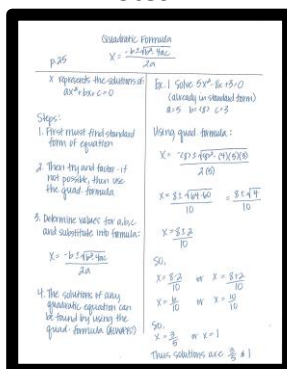 Quadratic Formula
p.25
x = -b±√b²-4ac
2a
x represents the solutions of
ax²+bx+c=0
Steps:
1. First must find standard
form of equation
2. Then try and factor - if
not possible, then use
the quad. formula
3. Determine values for a,b,c
and substitute into formula:
x = -b±√b²-4ac
2a
4. The solutions of any
quadratic equation can
be found by using the
quad. formula (ALWAYS!)
Ex. 1 Solve 5x²-8x+3=0
(already in standard form)
a=5 b=(-8) c=3
Using quad. formula:
x = -(-8)±√(-8)²-(4)(5)(3)
2(5)
x = 8±√64-60 = 8±√4
10 10
x = 8±2
10
So,
x = 8-2 or x = 8+2
10 10
x = 6 or x = 10
10 10
So,
x = 3/5 or x = 1
Thus solutions are 3/5 & 1